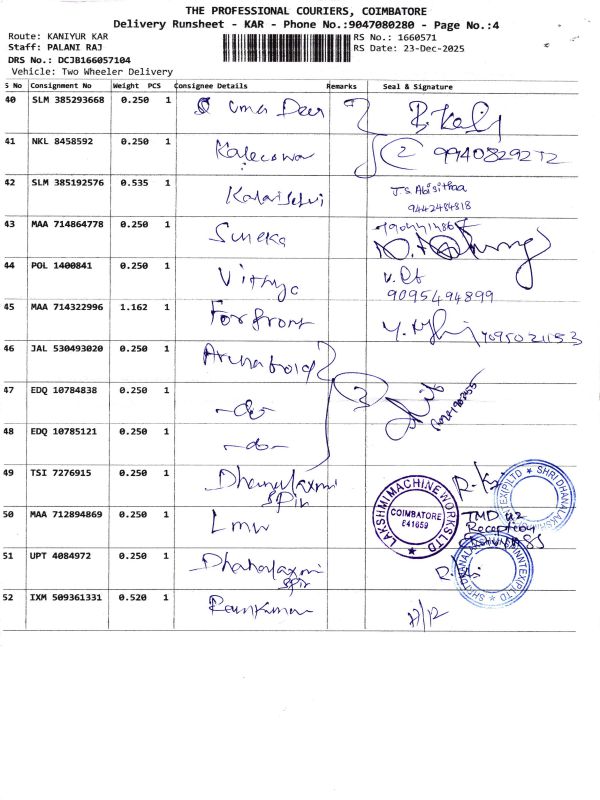 THE PROFESSIONAL COURIERS, COIMBATORE
Delivery Runsheet - KAR - Phone No.:9047080280 - Page No.:4
Route: KANIYUR KAR
RS No.: 1660571
Staff: PALANI RAJ
RS Date: 23-Dec-2025
DRS No.: DCJB166057104
Vehicle: Two Wheeler Delivery
S No Consignment No Weight PCS Consignee Details Remarks Seal & Signature
40 SLM 385293668 0.250 1
41 NKL 8458592 0.250 1 2
42 SLM 385192576 0.535 1 Kalaiselvi J.S. Abisithaa
9442484818
43 MAA 714864778 0.250 1 Sureka
44 POL 1400841 0.250 1 Vithya
9095494899
45 MAA 714322996 1.162 1 For front
46 JAL 530493020 0.250 1
47 EDQ 10784838 0.250 1 -do-
48 EDQ 10785121 0.250 1 -do-
49 TSI 7276915 0.250 1 Dhanalaxmi
R.K.
50 MAA 712894869 0.250 1 Lmw
LAKSHMI MACHINE WORKS LTD
COIMBATORE
641659
TMD u2
Reception
51 UPT 4084972 0.250 1 Dhanalaxmi
52 IXM 509361331 0.520 1 Ramkumar